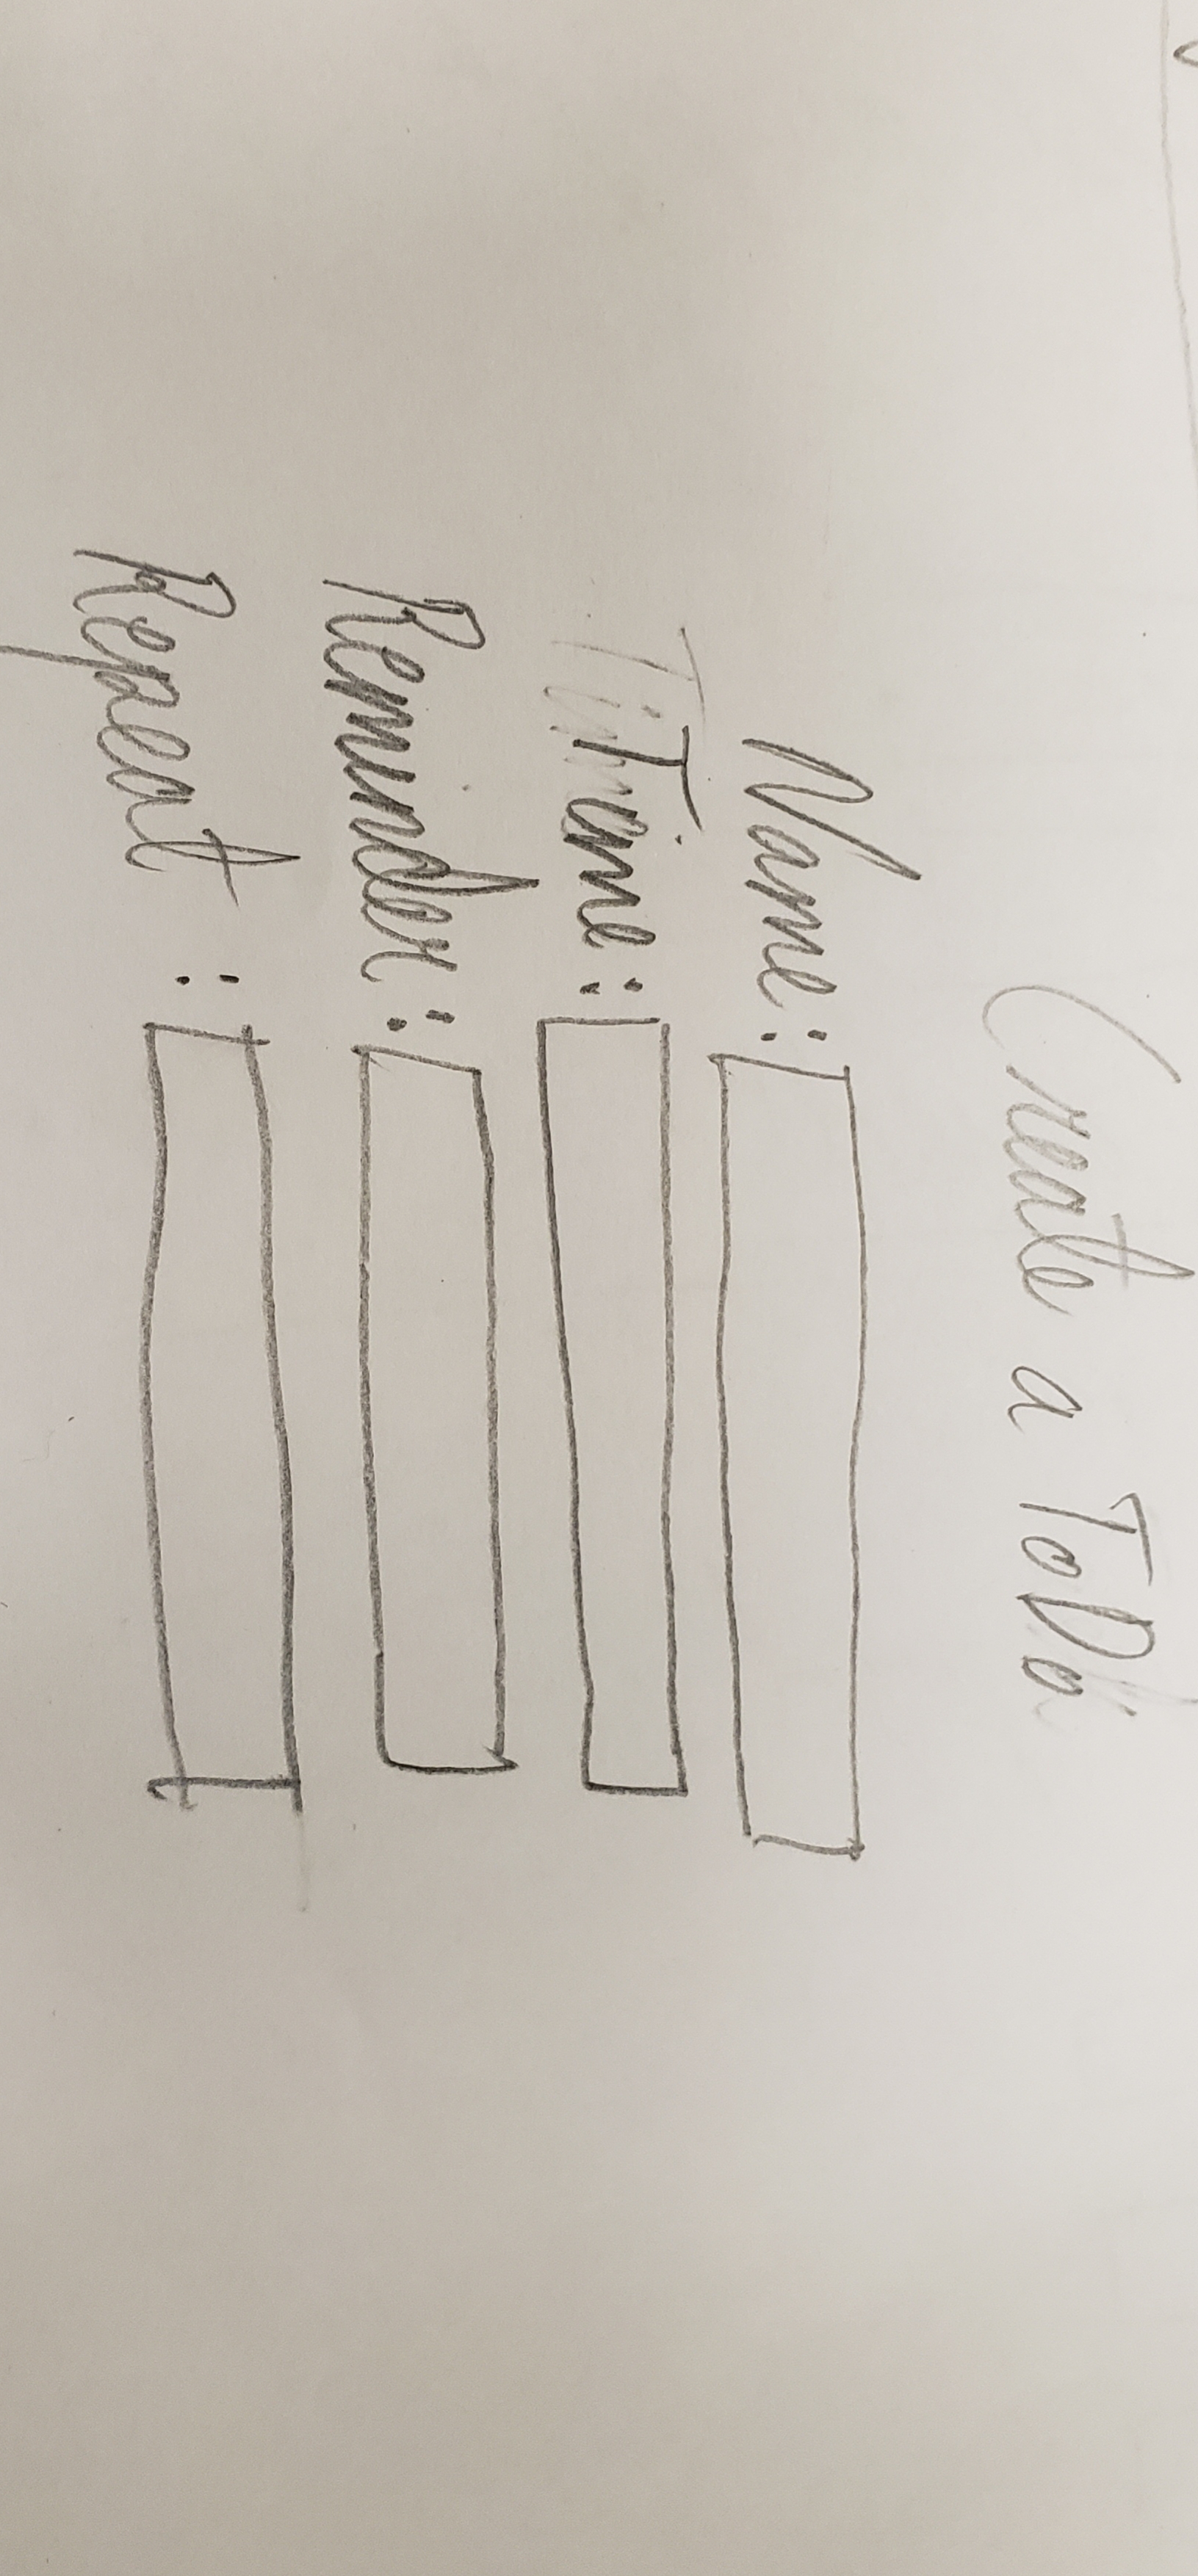 Create a ToDo
Name:
Time:
Reminder:
Repeat :